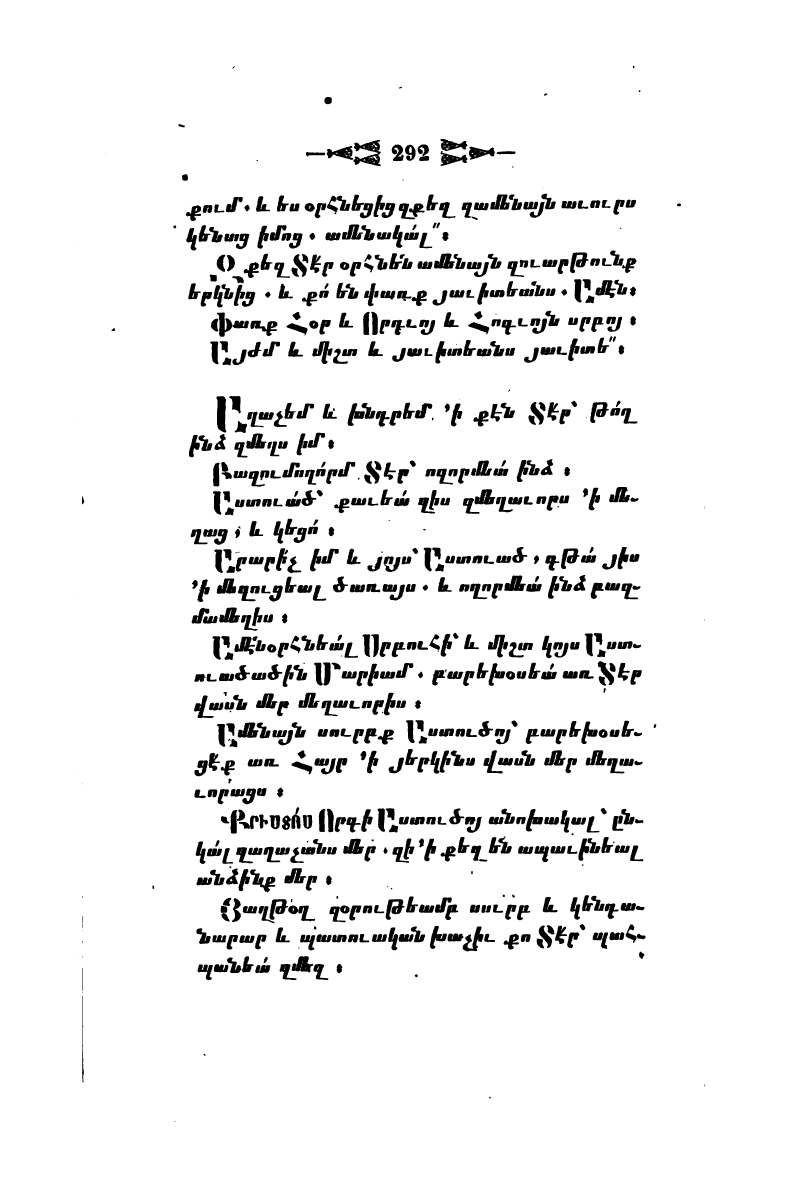 292
քում․ և ես օրհնեցից զքեզ զամենայն աւուրս
կենաց իմոց․ ամենակալ՞։
Օ քեզ Տէր օրհնեն ամենայն զուարթունք
երկնից․ և քո՛ են փառք յաւիտեանս․ Ամէն։
Փառք Հօր և Որդւոյ և Հոգւոյն սրբոյ։
Այժմ և միշտ և յաւիտեանս յաւիտե՞։
Աղաչեմ և խնդրեմ ՚ի քէն Տէր՝ թո՛ղ
ինձ զմեղս իմ։
Բազումողո՛րմ Տէր՝ ողորմեա՛ ինձ։
Աստուա՛ծ՝ քաւեա՛ զիս զմեղաւորս ՚ի մե-
ղաց, և կեցո՛։
Արարի՛չ իմ և յոյս՝ Աստուած, գթա՛ յիս
՚ի մեղուցեալ ծառայս․ և ողորմեա՛ ինձ բազ-
մամեղիս։
Ամէնօրհնեա՛լ Սրբուհի՝ և միշտ կոյս Աստ-
ուածածին Մարիամ․ բարեխօսեա՛ առ Տէր
վասն մեր մեղաւորիս։
Ամենայն սուրբք Աստուծոյ՝ բարեխօսե-
ցէ՛ք առ Հայր ՚ի յերկինս վասն մեր մեղա-
ւորացս։
ՔՐԻՍՏՈՍ Որդի Աստուծոյ անոխակալ՝ ըն-
կա՛լ զաղաչանս մեր․ զի ՚ի քեզ են ապաւինեալ
անձինք մեր։
Յաղթօղ զօրութեամբ սուրբ և կենդա-
նարար և պատուական խաչիւ քո Տէր՝ պահ-
պանեա՛ զմեզ։